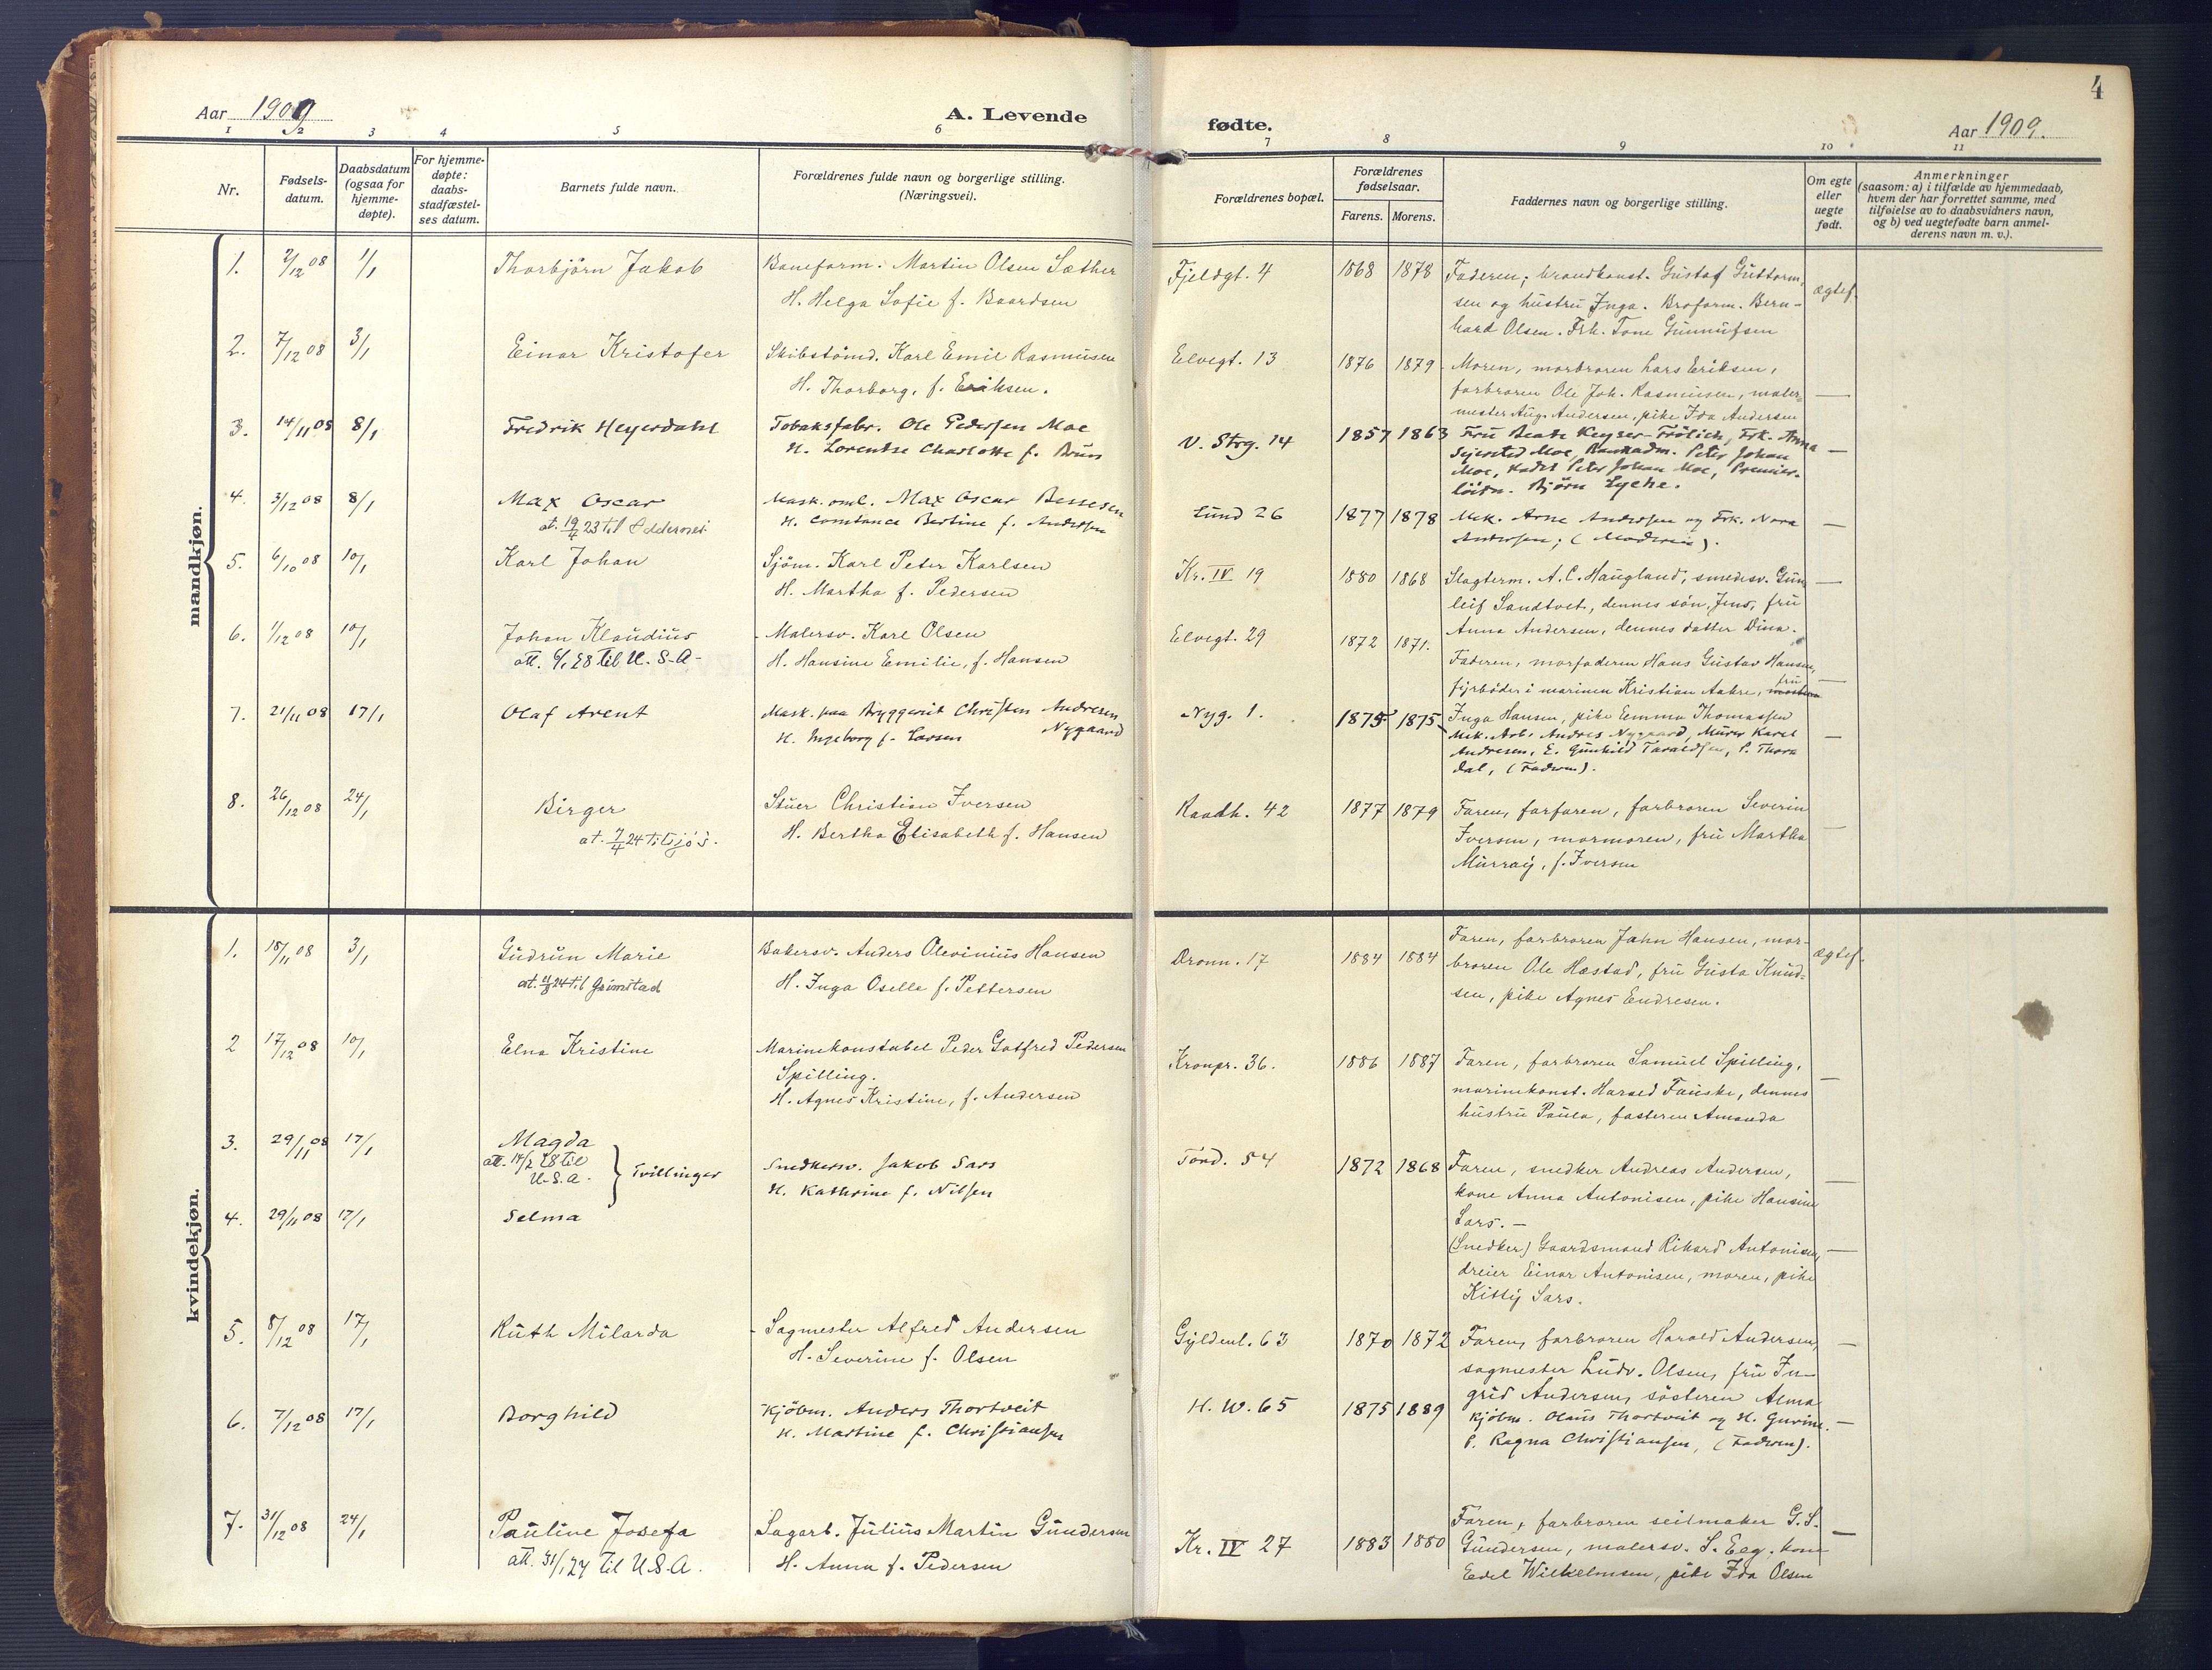 4
Aar 1909
A. Levende
fødte.
Aar 1909.
1 2 3 4 5 6 7 8 9 10 11
Nr.
Fødsels-
datum.
Daabsdatum
(ogsaa for
hjemme-
døpte).
For hjemme-
døpte:
daabs-
stadfæstel-
ses datum.
Barnets fulde navn.
Forældrenes fulde navn og borgerlige stilling.
(Næringsvei).
Forældrenes bopæl.
Forældrenes
fødselsaar.
Farens. Morens.
Faddernes navn og borgerlige stilling.
Om egte
eller
uegte
født.
Anmerkninger
(saasom: a) i tilfælde av hjemmedaab,
hvem der har forrettet samme, med
tilføielse av to daabsvidners navn,
og b) ved uegtefødte barn anmel-
derens navn m. v.).
mandkjøn.
1. 2/12 08 1/1 Thorbjörn Jakob
Baneform. Martin Olsen Sæther
H. Helga Sofie f. Baardsen
Fjeldgt. 4 1868 1878
Faderen, brandkonst. Gustaf Guttorm-
sen og hustru Inga. Broform. Bern-
hard Olsen. Frk. Tone Gunnufsen
ægtef.
2. 7/12 08 3/1 Einar Kristofer
Skibstömd. Karl Emil Rasmusen
H. Thorborg, f. Eriksen.
Elvegt. 13 1876 1879
Moren, morbroren Lars Eriksen,
farbroren Ole Joh. Rasmusen, maler-
mester Aug. Andersen, pike Ida Andersen
—
3. 14/11 08 8/1 Fredrik Heyerdahl
Tobaksfabr. Ole Pedersen Moe
H. Lorentse Charlotte f. Bruun
V. Strg. 14 1857 1863
Fru Beate Keyser-Frölich, Frk. Anna
Sejersted Moe, Bankadm. Peter Johan
Moe, Kadet Peter Johan Moe, Premier-
löitn. Björn Lyche.
—
4. 3/12 08 8/1 Max Oscar
at. 19/4 23 til Oddernes
Mask. oml. Max Oscar Bessesen
H. Constance Bertine f. Andersen
Lund 26 1877 1878
Mek. Arne Andersen og Frk. Nora
Andersen; (Moderen).
—
5. 6/10 08 10/1 Karl Johan
Sjöm. Karl Peter Karlsen
H. Martha f. Pedersen
Kr. IV 19 1880 1868
Slagterm. A. C. Haugland, smedesv. Gun-
leif Sandtvet, dennes sön, Jens, fru
Anna Andersen, dennes datter Dina.
—
6. 1/12 08 10/1 Johan Klaudius
att. 6/1 28 til U.S.A-
Malersv. Karl Olsen
H. Hansine Emilie, f. Hansen
Elvegt. 29 1872 1871.
Faderen, morfaderen Hans Gustav Hansen,
fyrböder i marinen Kristian Aabre, fru
Inga Hansen, pike Emma Thomassen
—
7. 21/11 08 17/1 Olaf Arent
Mask. paa Bryggeriet Christen Andresen
Nygaard
H. Ingeborg f. Larsen
Nyg. 1. 1875 1875
Mek. Arb. Andres Nygaard, Murer Karel
Andresen, E. Gunhild Taraldsen, P. Thora
Dal, (Faderen).
—
8. 26/12 08 24/1 Birger
at. 7/4 24 til sjös.
Stuer Christian Iversen
H. Bertha Elisabeth f. Hansen
Raadh. 42 1877 1879
Faren, farfaren, farbroren Severin
Iversen, mormoren, fru Martha
Murray, f. Iversen
—
kvindekjøn.
1. 18/11 08 3/1 Gudrun Marie
at. 24 til Grimstad
Bakersv. Anders Olevinius Hansen
H. Inga Oselle f. Pettersen
Dronn. 17 1884 1884
Faren, farbroren John Hansen, mor-
broren Ole Hæstad, fru Gusta Knud-
sen, pike Agnes Endresen.
ægtef.
2 17/12 08 10/1 Elna Kristine
Marinekonstabel Peder Gotfred Pedersen
Spilling.
H. Agnes Kristine, f. Andersen
Kronpr. 36. 1886 1887
Faren, farbroren Samuel Spilling,
marinekonst. Harald Fauske, dennes
hustru Paula, fasteren Amanda
—
3. 29/11 08 17/1 Magda
att. 14/2 28 til
U.S.A.
Tvillinger
Snedkersv. Jakob Sars
H. Kathrine f. Nilsen
Tord. 54 1872 1868
Faren, snedker Andreas Andersen,
kone Anna Antonisen, pike Hansine
Sars. —
—
4. 29/11 08 17/1 Selma
(Snedker) Gaardsmand Rikard Antonisen,
dreier Einar Antonisen, moren, pike
Kitty Sars.
—
5. 8/12 08 17/1 Ruth Milarda
Sagmester Alfred Andersen
H. Severine f. Olsen
Gyldenl. 63 1870 1872
Faren, farbroren Harald Andersen,
sagmester Ludv. Olsen, fru In-
grid Andersen, søsteren Alma
—
6. 7/12 08 17/1 Borghild
Kjöbm. Anders Thortveit
H. Martine f. Christiansen
H. W. 65 1875 1889
Kjöbm. Olaus Thortveit og H. Gurine.
P. Ragna Christiansen, (Faderen).
—
7. 31/12 08 24/1 Pauline Josefa
att. 31/1 27 til U.S.A.
Sagarb. Julius Martin Gundersen
H. Anna f. Pedersen
Kr. IV 27 1883 1880
Faren, farbroren seilmaker G. S.
Gundersen, malersv. S. Eeg, kone
Edel Wilhelmsen, pike Ida Olsen
—